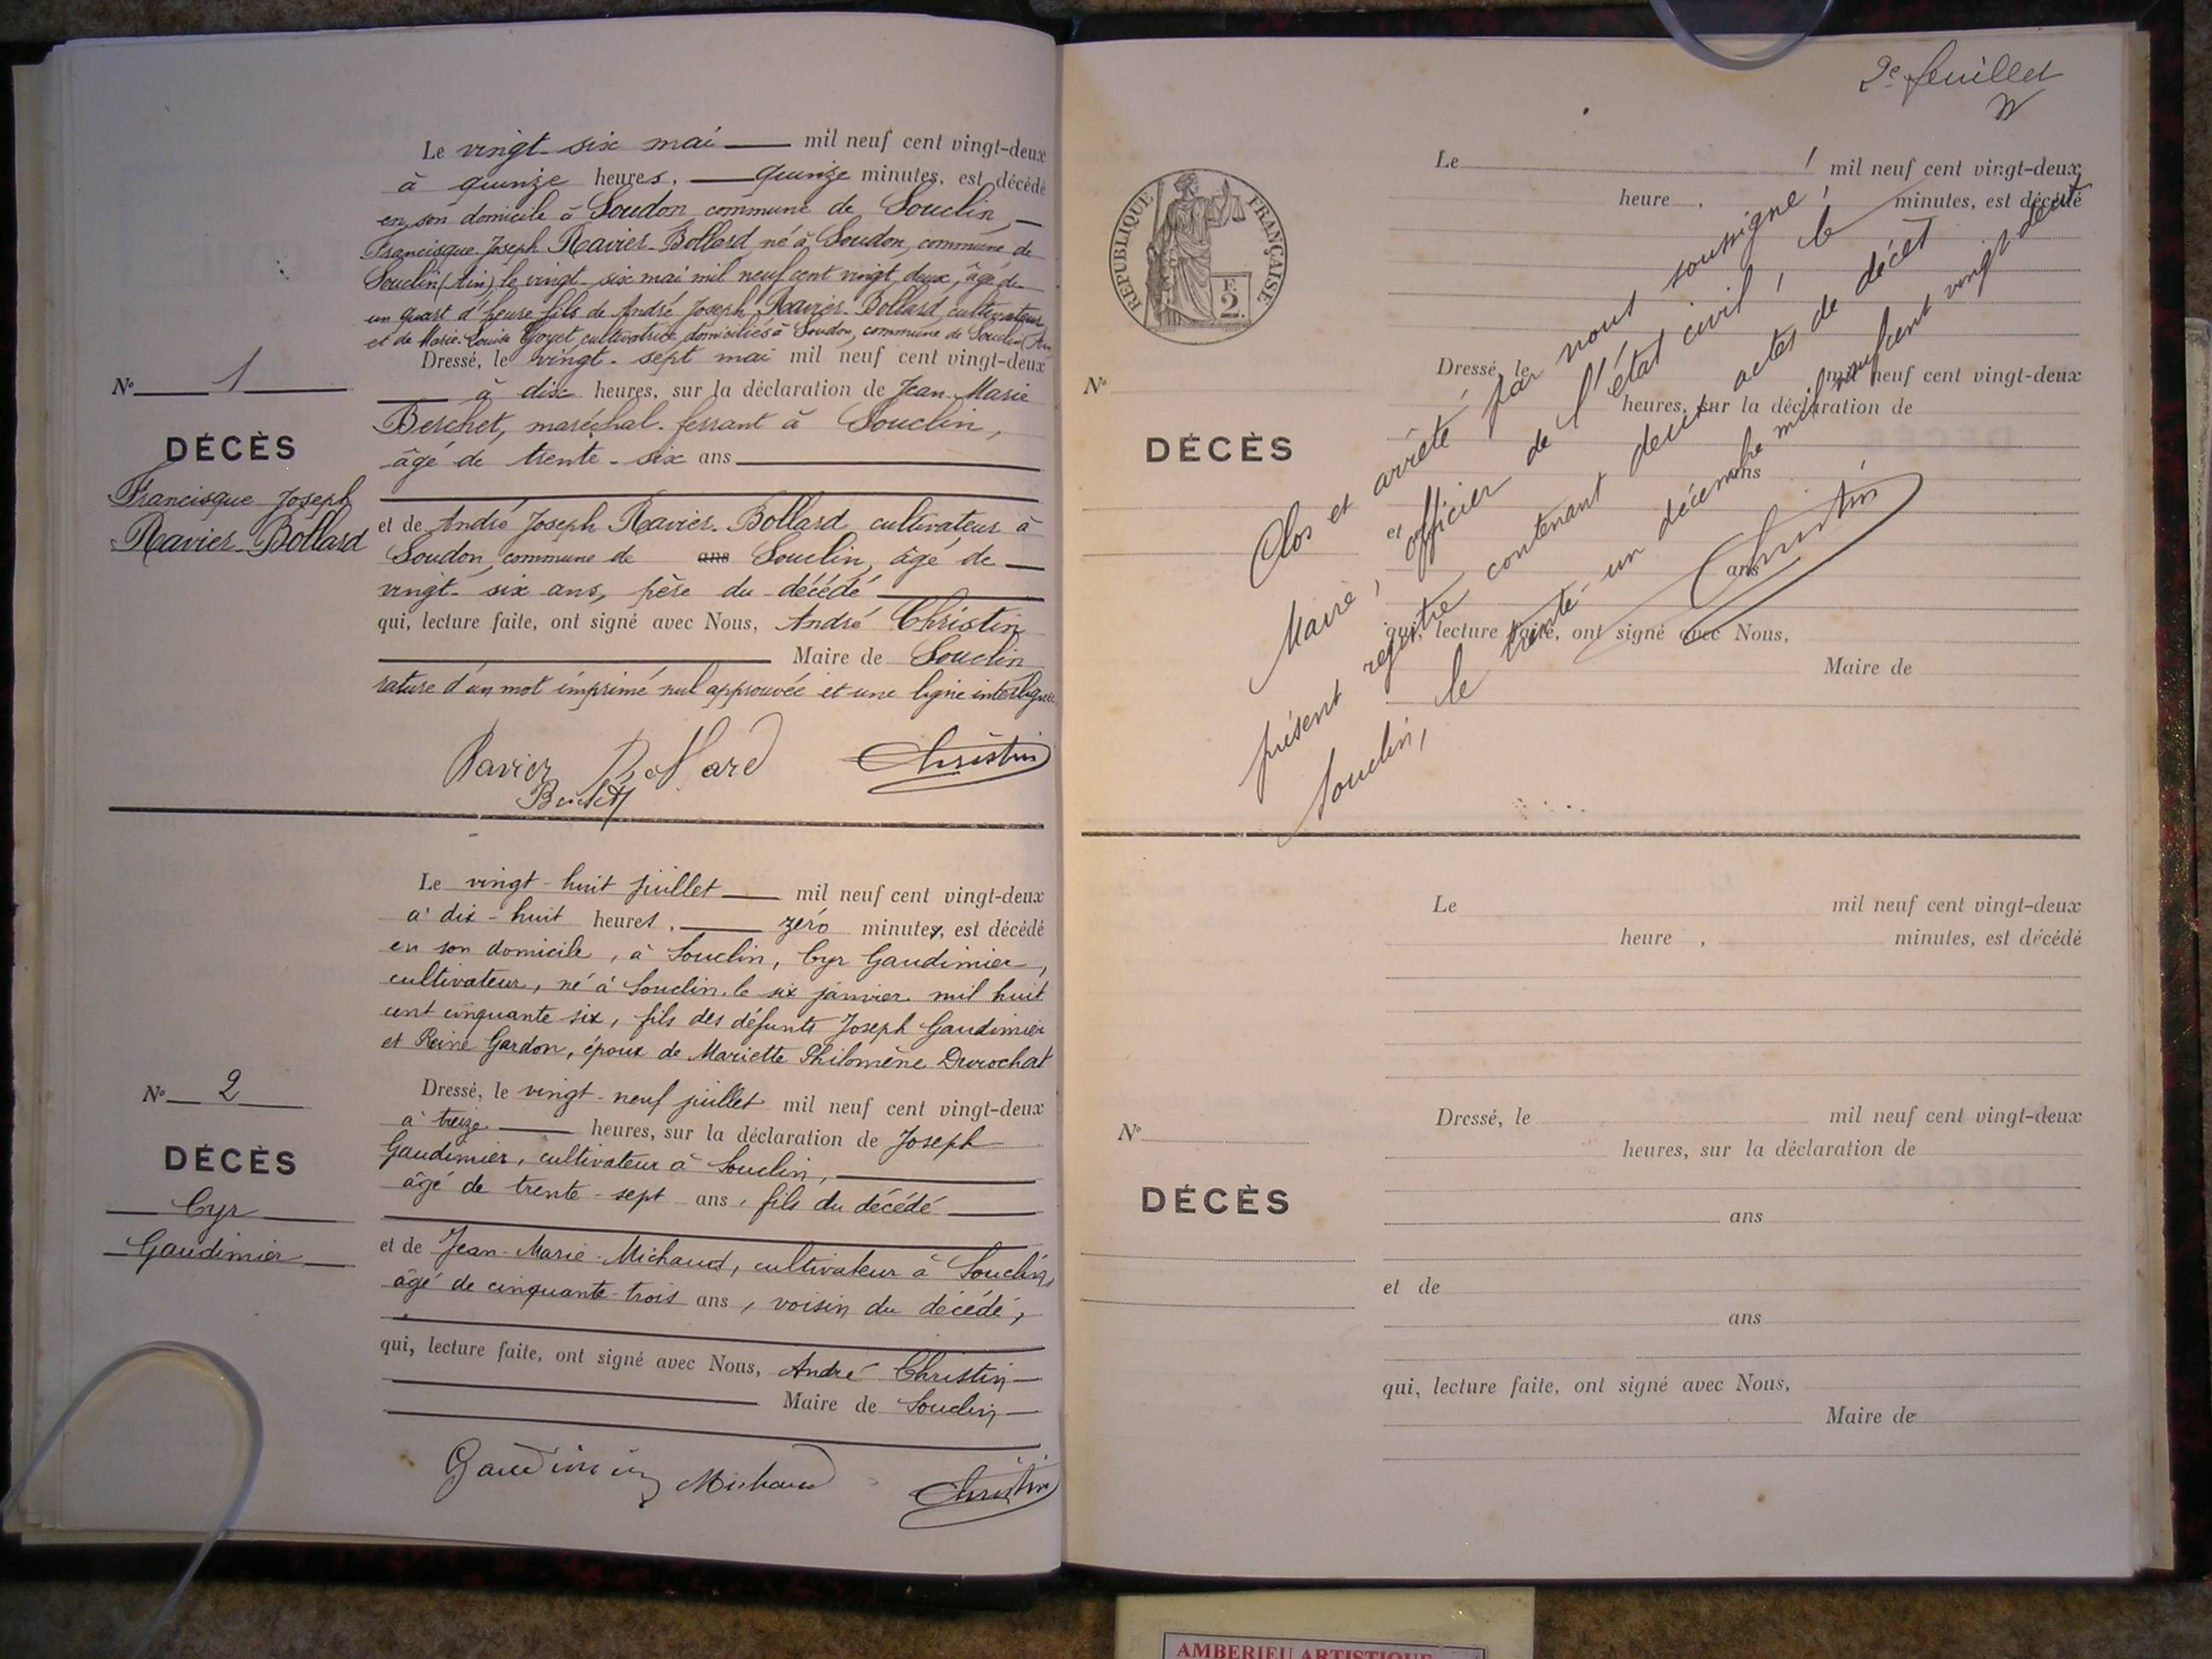 Le vingt-six mai mil neuf cent vingt-deux
à quinze heures, quinze minutes, est décédé
en son domicile à Soudon commune de Souclin,
Francisque Joseph Ravier-Bollard né à Soudon, commune de
Souclin (Ain) le vingt-six mai mil neuf cent vingt deux, âgé de
un quart d'heure fils de André Joseph Ravier-Bollard, cultivateur
et de Marie-Louise Goyet, cultivatrice, domiciliés à Soudon, commune de Souclin (Ain)
Dressé, le vingt-sept mai mil neuf cent vingt-deux
à dix heures, sur la déclaration de Jean-Marie
Berchet, maréchal-ferrant à Souclin,
âgé de trente-six ans
et de André Joseph Ravier-Bollard cultivateur à
Soudon, commune de ans Souclin, âgé de
vingt-six ans, père du décédé
qui, lecture faite, ont signé avec Nous, André Christin
Maire de Souclin
rature d'un mot imprimé nul approuvée et une ligne interlignée
Ravier Bollard Christin
Berchet
No 1
DÉCÈS
Francisque Joseph
Ravier-Bollard
Le vingt-huit juillet mil neuf cent vingt-deux
à dix-huit heures, zéro minutes, est décédé
en son domicile, à Souclin, Cyr Gaudimier,
cultivateur, né à Souclin, le six janvier mil huit
cent cinquante six, fils des défunts Joseph Gaudimier
et Reine Gardon, époux de Mariette Philomène
Dressé, le vingt-neuf juillet mil neuf cent vingt-deux
à treize heures, sur la déclaration de Joseph
Gaudimier, cultivateur à Souclin,
âgé de trente-sept ans, fils du décédé
et de Jean-Marie-Michaud, cultivateur à Souclin,
âgé de cinquante-trois ans, voisin du décédé,
qui, lecture faite, ont signé avec Nous, André Christin
Maire de Souclin
Gaudimier Michaud Christin
No 2
DÉCÈS
Cyr
Gaudimier
2e feuillet
RÉPUBLIQUE FRANÇAISE
F.
2.
Le mil neuf cent vingt-deux
heure , minutes, est décédé
Dressé, le mil neuf cent vingt-deux
heures, sur la déclaration de
ans
et
ans
qui, lecture faite, ont signé avec Nous,
Maire de
No
DÉCÈS
Clos et arrêté par nous soussigné,
Maire, officier de l'état civil, le
présent registre contenant deux actes de décès
Souclin, le trente-un décembre mil neuf cent vingt-deux
Christin
Le mil neuf cent vingt-deux
heure , minutes, est décédé
Dressé, le mil neuf cent vingt-deux
heures, sur la déclaration de
ans
et de
ans
qui, lecture faite, ont signé avec Nous,
Maire de
No
DÉCÈS
AMBERIEU ARTISTIQUE